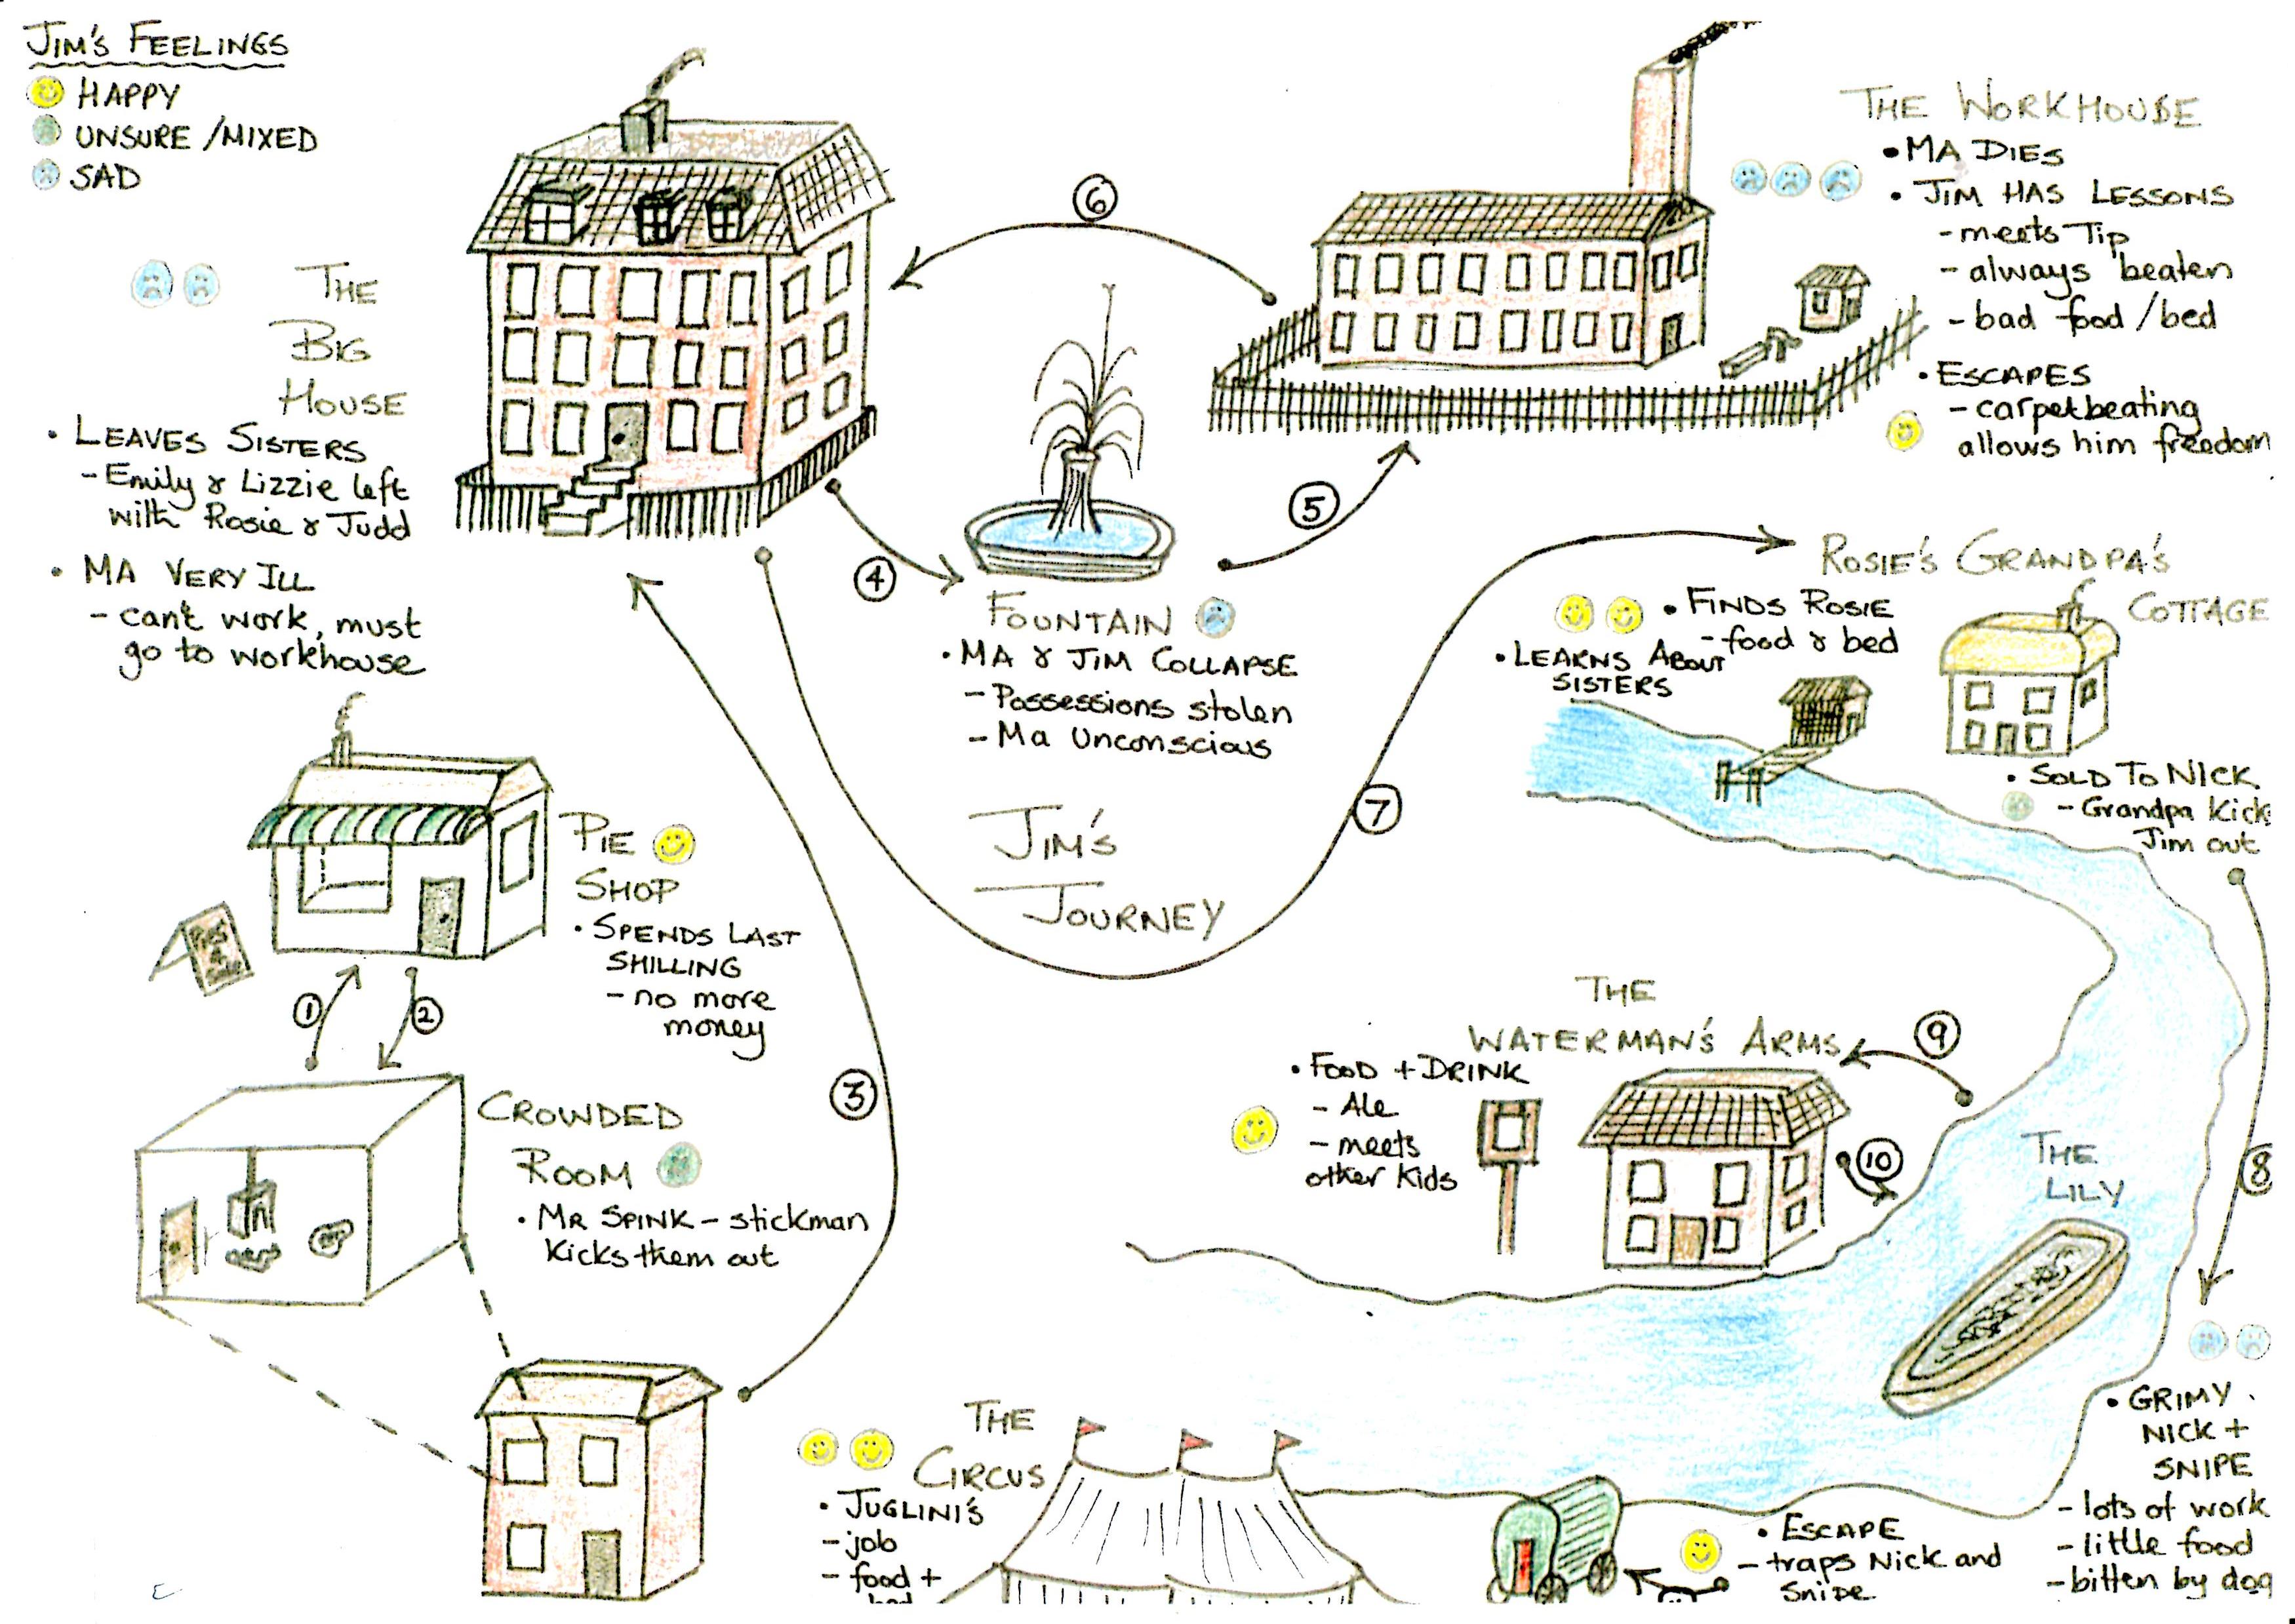 JIM'S FEELINGS
HAPPY
UNSURE/MIXED
SAD
THE
BIG
HOUSE
• LEAVES SISTERS
- Emily & Lizzie left
with Rosie & Judd
• MA VERY ILL
- can't work, must
go to workhouse
⑥
THE WORKHOUSE
• MA DIES
• JIM HAS LESSONS
- meets Tip
- always beaten
- bad food/bed
• ESCAPES
- carpetbeating
allows him freedom
④
⑤
FOUNTAIN
• MA & JIM COLLAPSE
- Possessions stolen
- Ma Unconscious
ROSIE'S GRANDPA'S
COTTAGE
• FINDS ROSIE
- food & bed
• LEARNS ABOUT
SISTERS
• SOLD TO NICK
- Grandpa Kicks
Jim out
⑦
JIM'S
JOURNEY
PIE
SHOP
• SPENDS LAST
SHILLING
- no more
money
①
②
③
CROWDED
ROOM
• MR SPINK - stickman
Kicks them out
THE
WATERMAN'S ARMS
• FOOD + DRINK
- Ale
- meets
other Kids
⑨
⑩
⑧
THE
LILY
• GRIMY
NICK +
SNIPE
- lots of work
- little food
- bitten by dog
• ESCAPE
- traps Nick and
Snipe
THE
CIRCUS
• JUGLINI'S
- job
- food +
bed